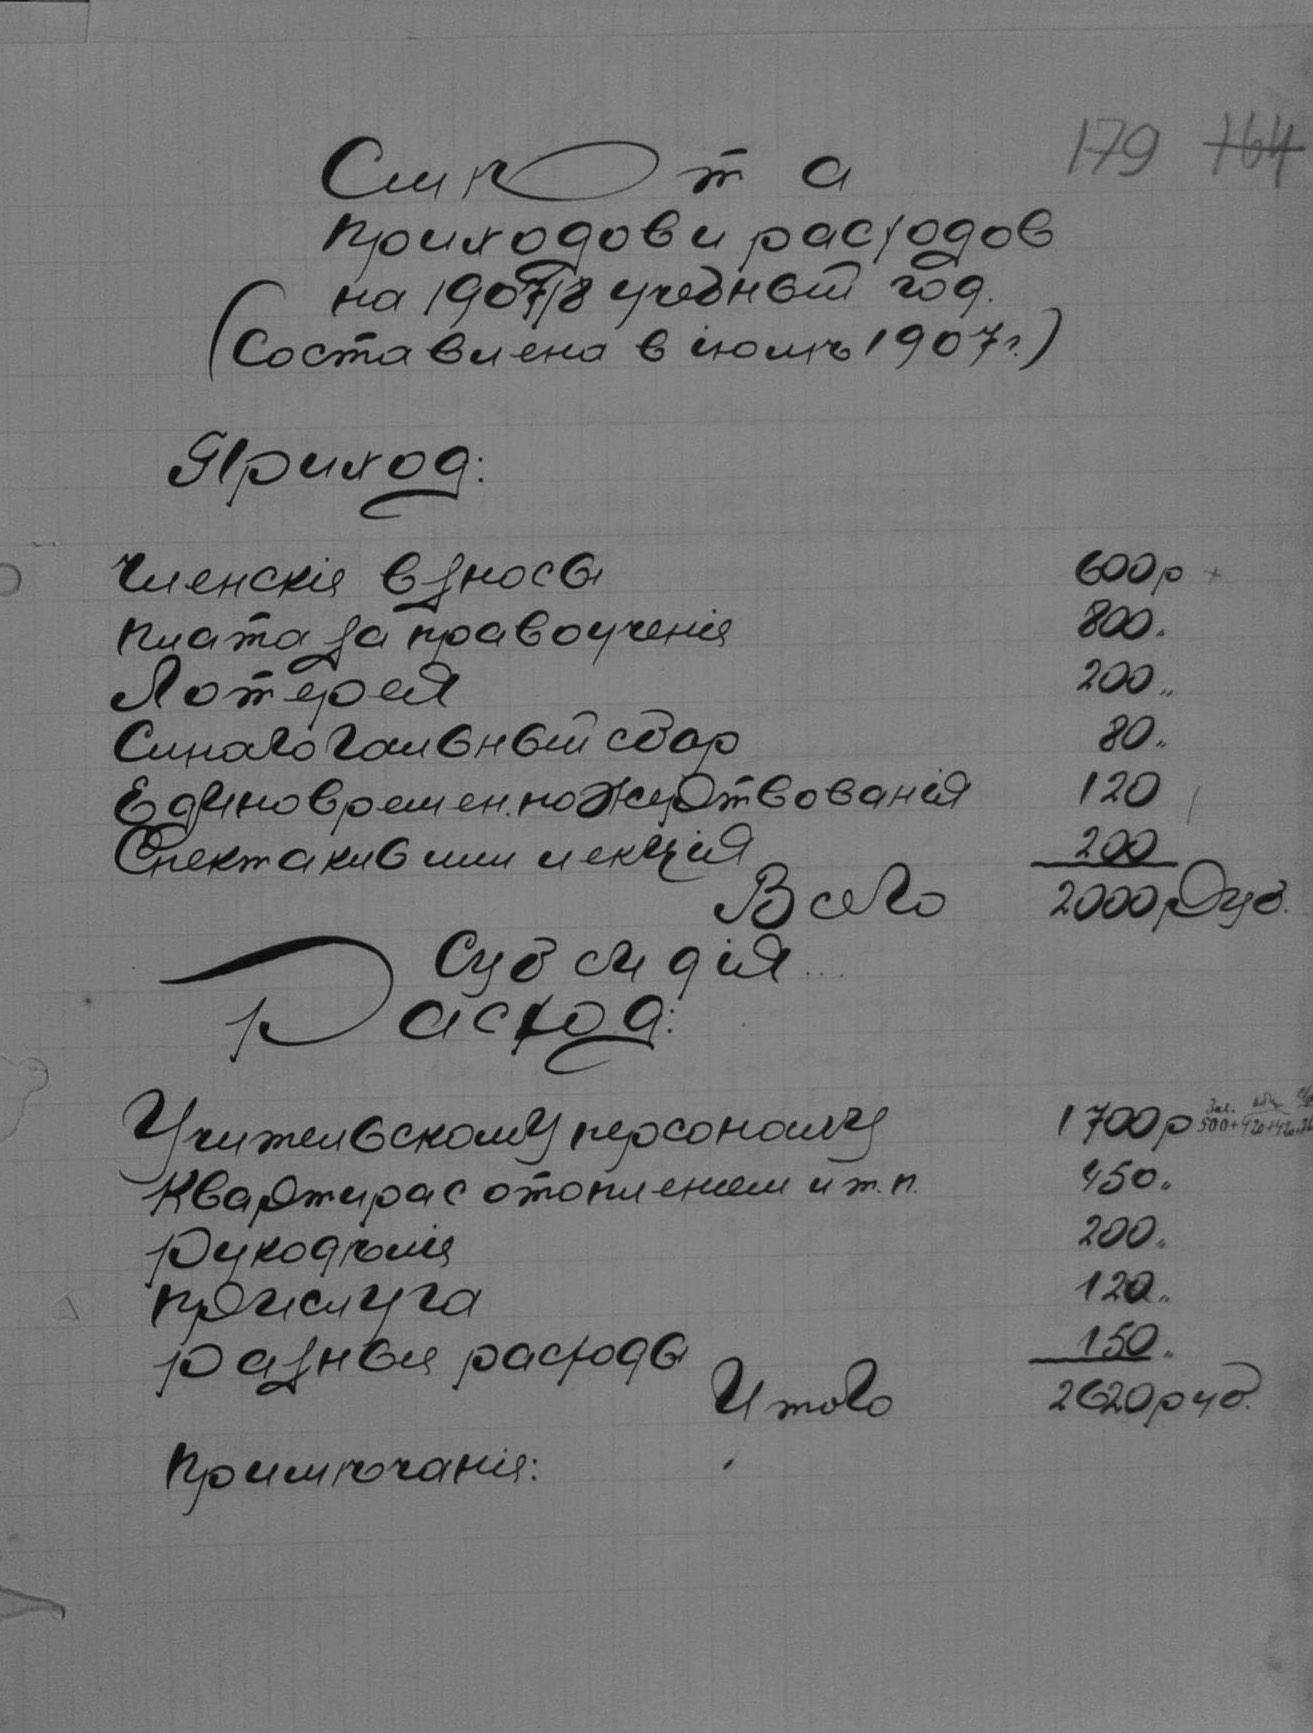 179 164
Смѣта
приходов и расходов
на 1907/8 учебный год.
(Составлена в іюлѣ 1907 г.)
Приход:
Членскія взносы 600 р
плата за правоученія 800 "
Лотерея 200 "
Синагогальный сбор 80 "
Единовремен. пожертвованія 120
Спектакль или лекція 200
Всего 2000 руб.
Субсидія...
Расход:
Учительскому персоналу 1700 р
Квартира с отоплением и т. п. 450 "
рукодѣлія 200 "
прислуга 120 "
разныя расходы 150 "
Итого 2620 руб.
примѣчанія: